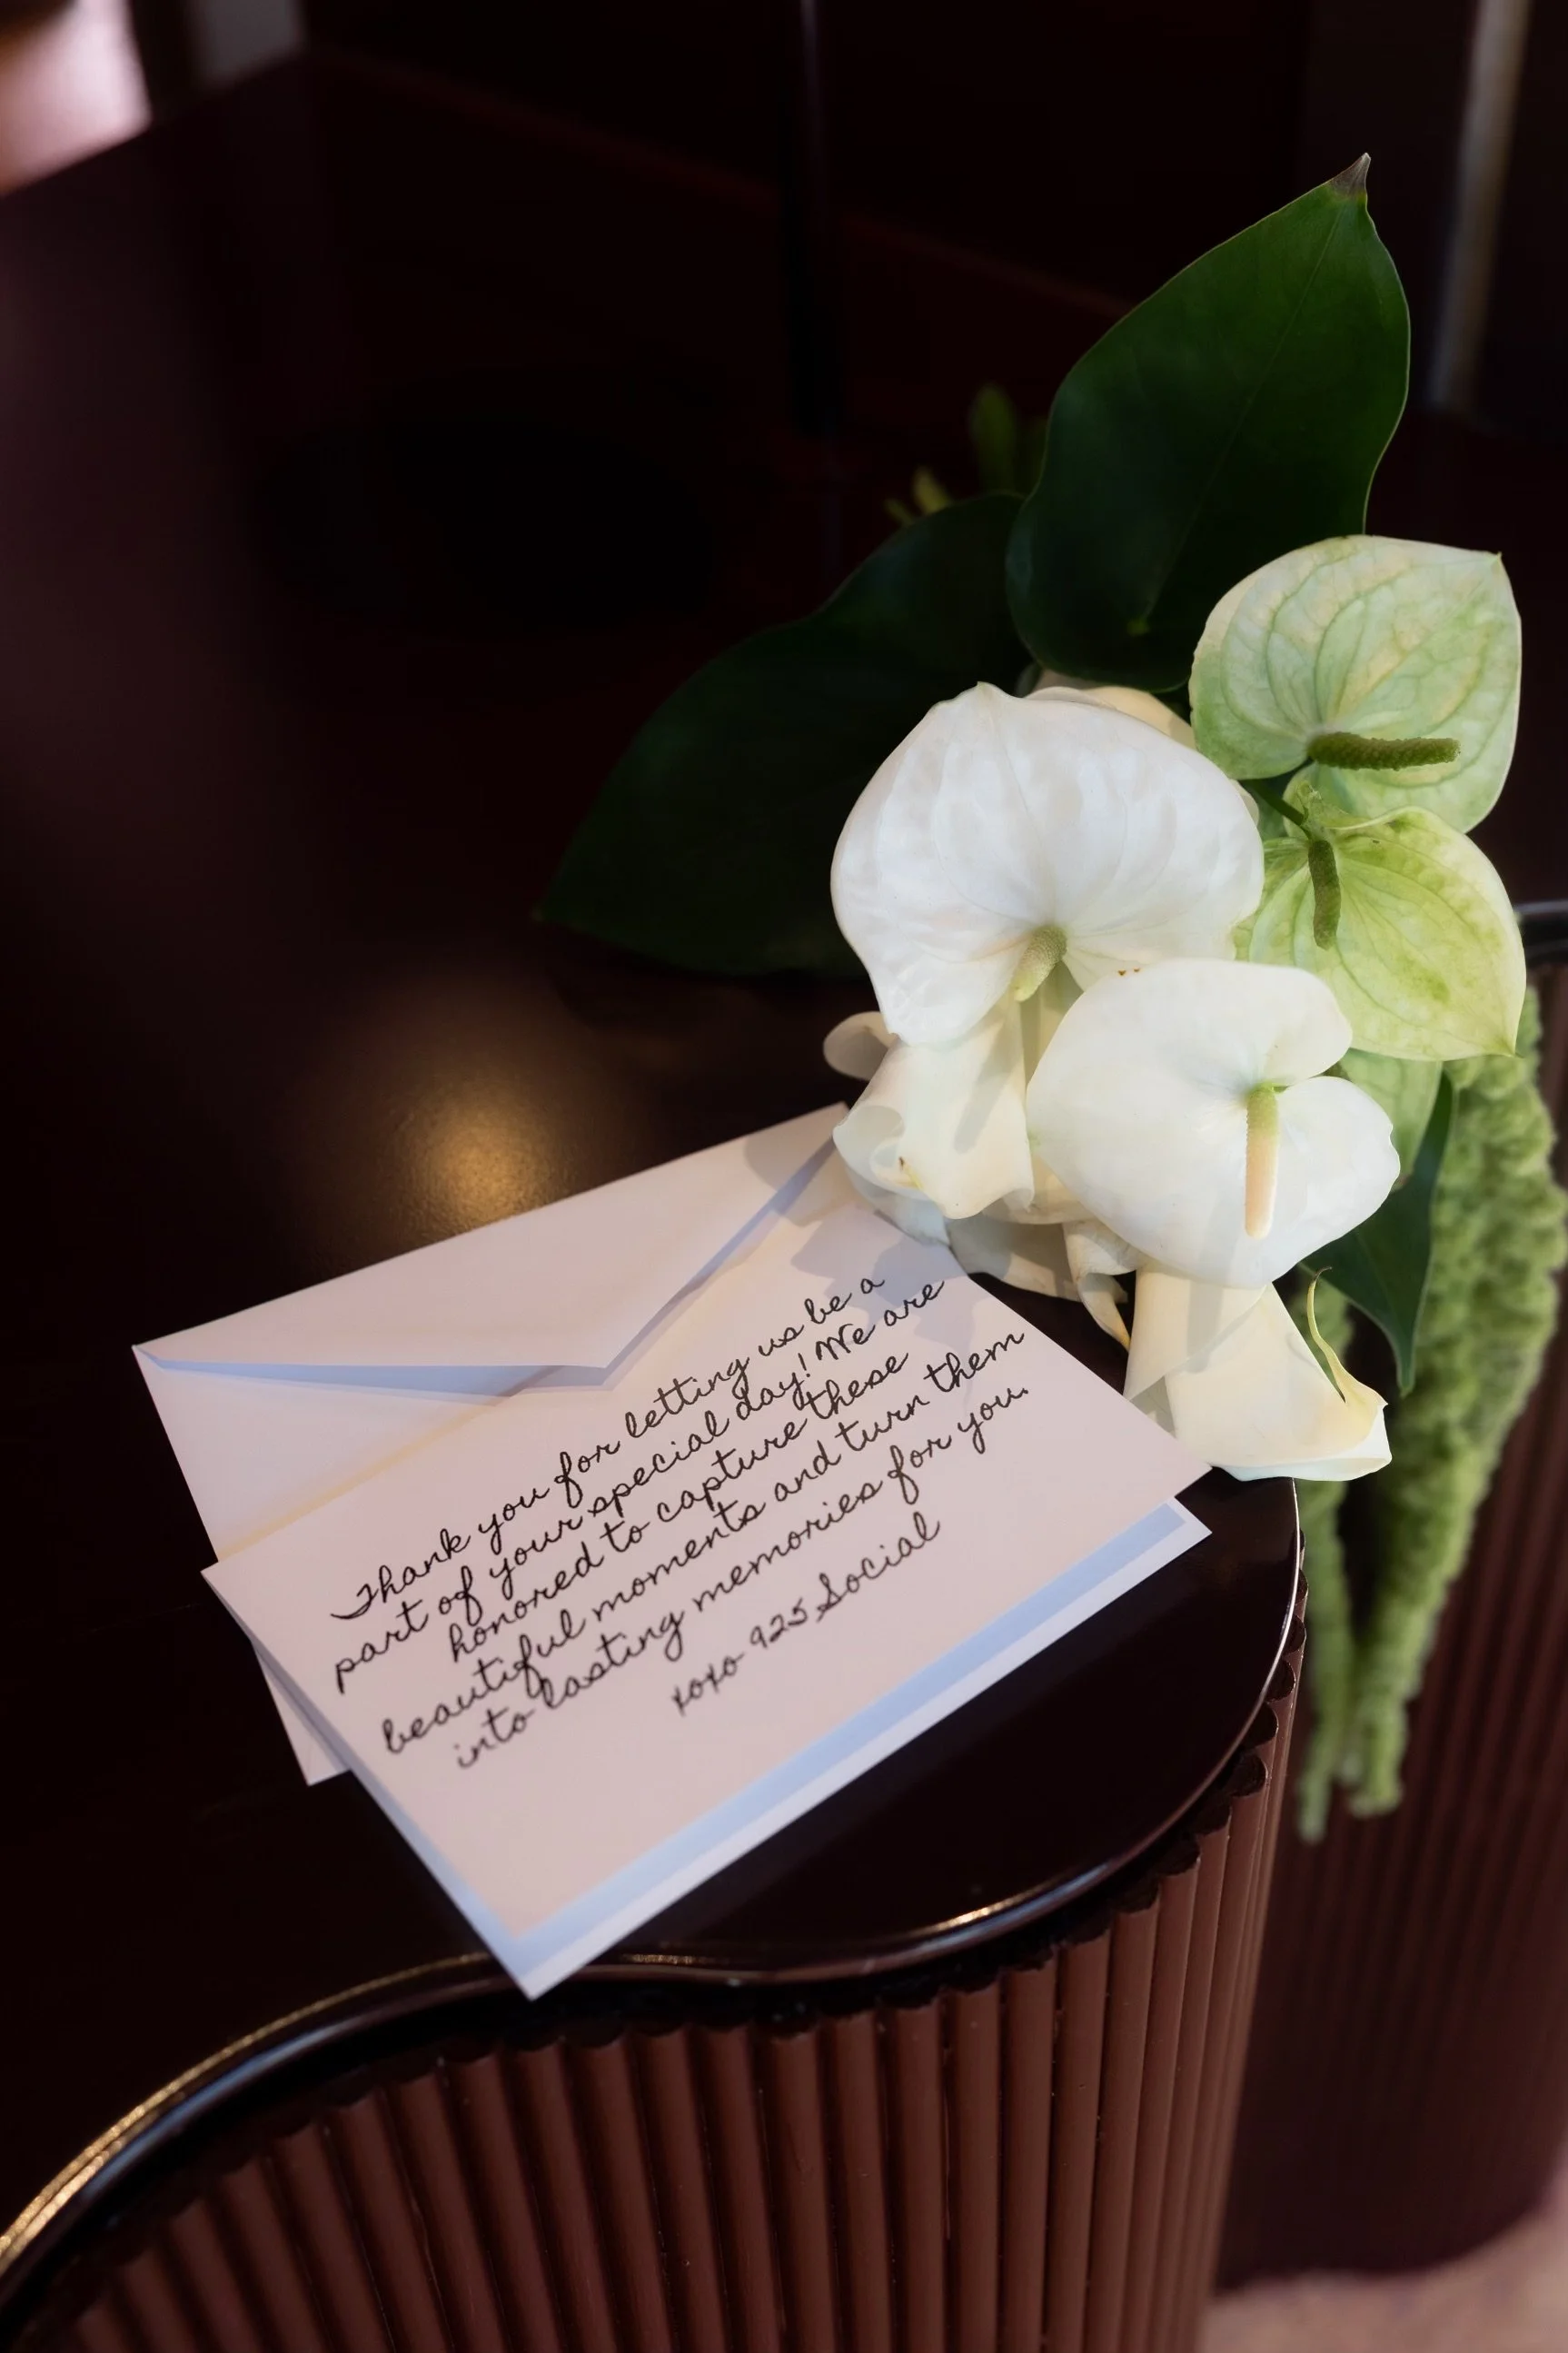 Thank you for letting us be a
part of your special day! We are
honored to capture these
beautiful moments and turn them
into lasting memories for you.
xoxo 925 Social